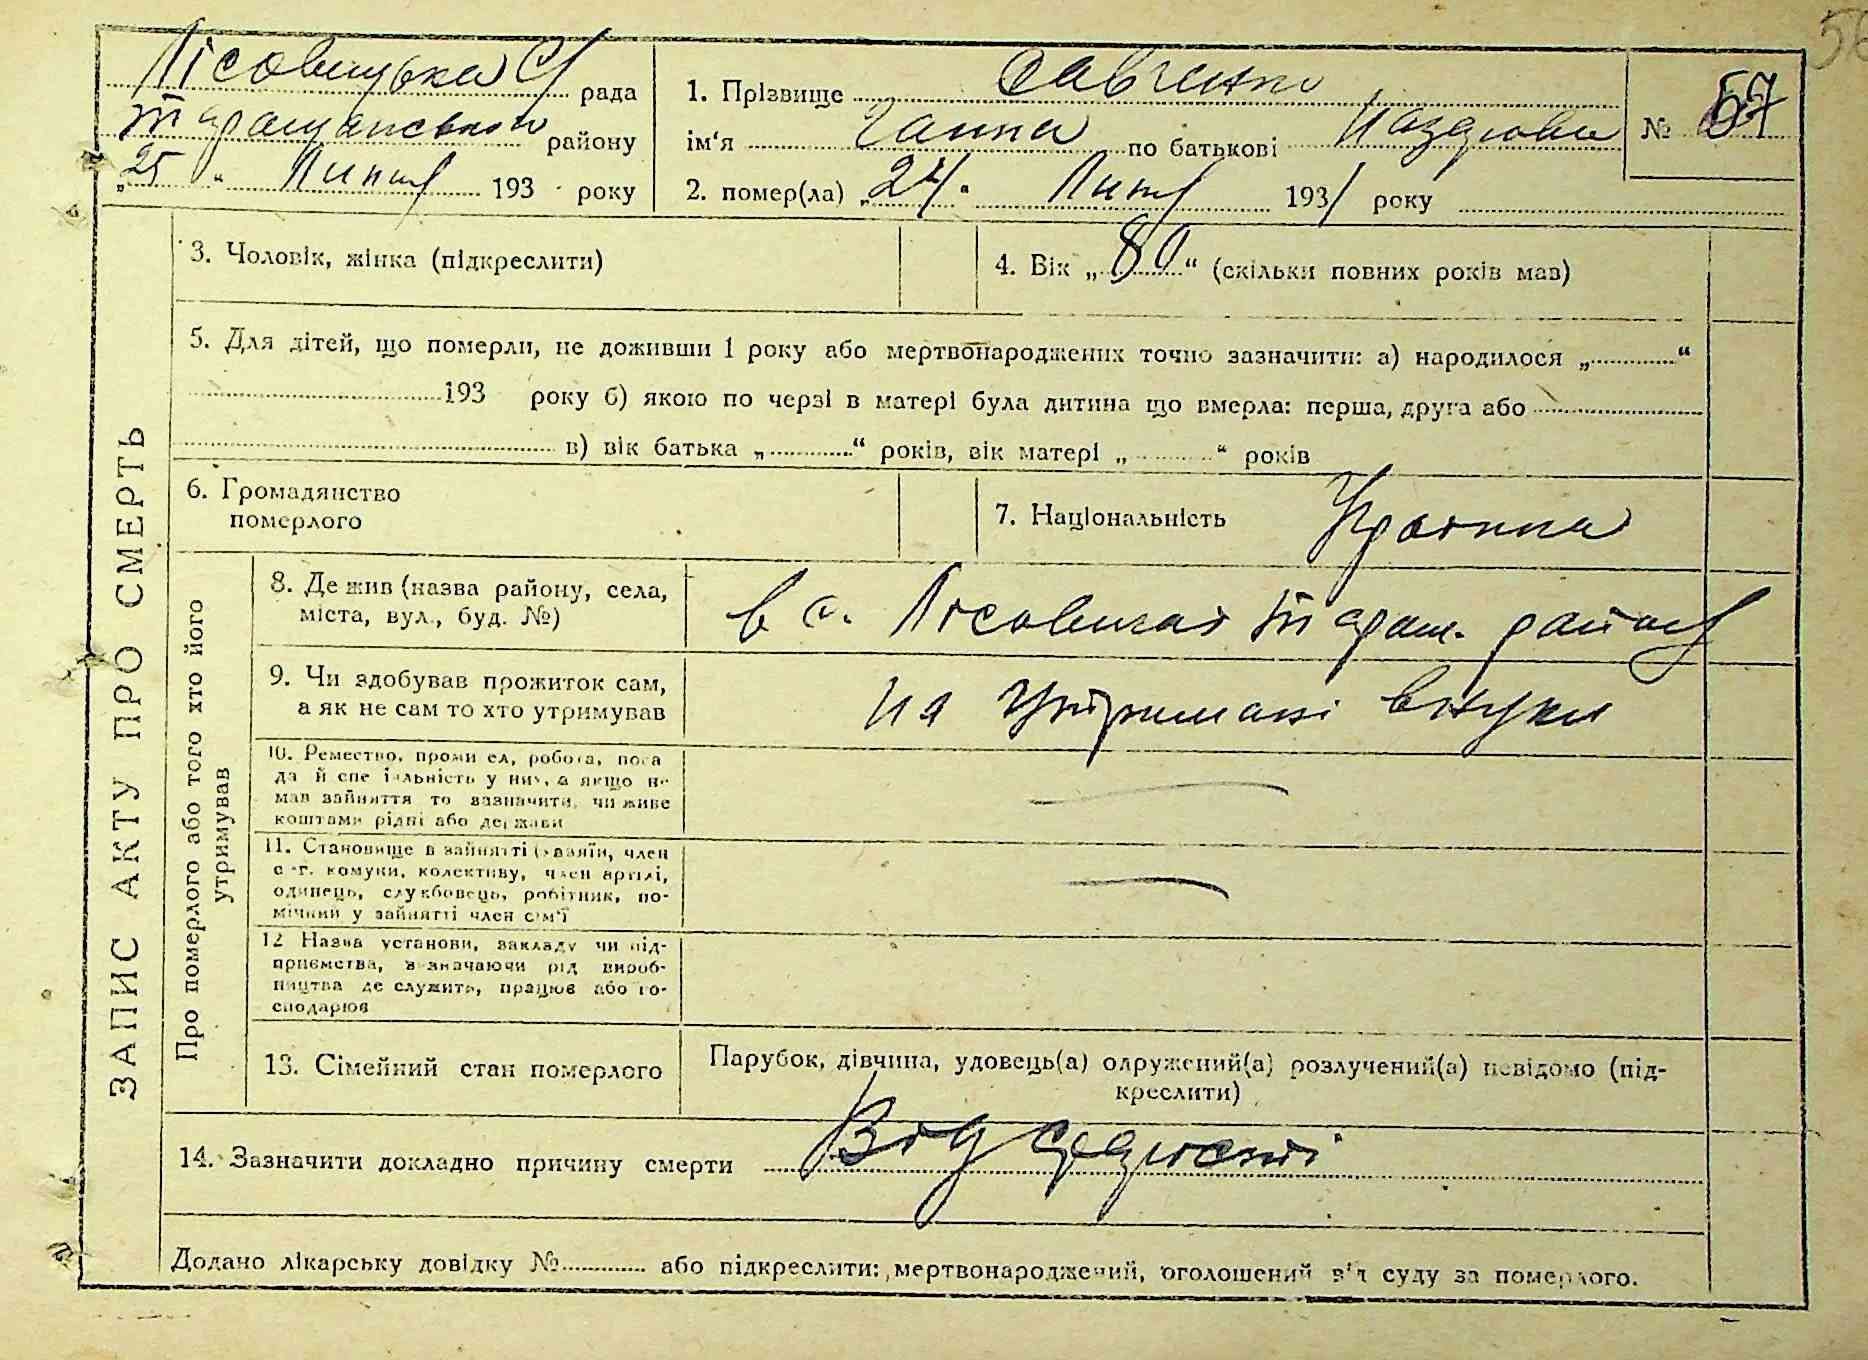 56
Лісовицька С/ рада
Таращанського району
„25“ Липня 193 року
1. Прізвище Савченко
ім'я Ганна по батькові
№ 57
2. помер(ла) „24“ Липн 1931 року
ЗАПИС АКТУ ПРО СМЕРТЬ
3. Чоловік, жінка (підкреслити)
4. Вік „80“ (скільки повних років мав)
5. Для дітей, що померли, не доживши 1 року або мертвонароджених точно зазначити: а) народилося „ “
193 року б) якою по черзі в матері була дитина що вмерла: перша, друга або
в) вік батька „ “ років, вік матері „ “ років
6. Громадянство
померлого
7. Національність Українка
Про померлого або того хто його
утримував
8. Де жив (назва району, села,
міста, вул., буд. №)
в с. Лісовичах Тараш. району
9. Чи здобував прожиток сам,
а як не сам то хто утримував
на утриманні внука
10. Ремество, промисел, робота, поса
да й спеціяльність у них, а якщо не
мав зайняття то зазначити, чи живе
коштами рідні або держави
11. Становище в зайнятті (хазяїн, член
с-г. комуни, колективу, член артілі,
одинець, службовець, робітник, по-
мічний у зайнятті член сім'ї
12 Назва установи, закладу чи під-
приємства, визначаючи рід вироб-
ництва де служить, працює або го-
сподарює
13. Сімейний стан померлого
Парубок, дівчина, удовець(а) одружений(а) розлучений(а) невідомо (під-
креслити)
14. Зазначити докладно причину смерти Від
Додано лікарську довідку № або підкреслити: мертвонароджений, оголошений від суду за померлого.